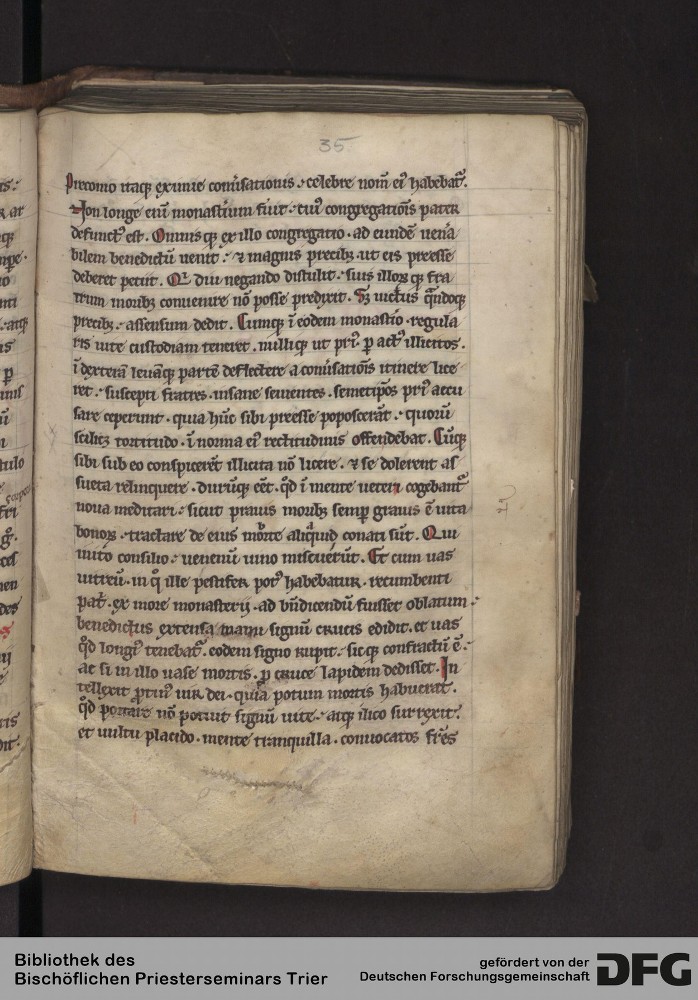 35
Precomo itaq; eximie conũsationis. celebre nom̃ eiꝰ habebat᷑.
Non longe enĩ monasteriũ fuit. cuiꝰ congregatiõis pater
defunctꝰ est. Omnis q; ex illo congregatio. ad eundẽ uena
bilem benedictũ uenit. ⁊ magnis precibꝫ. ut eis preesse
deberet petiit. Qi diu negando distulit. suis illoꝝ q; fra
trum moribꝫ conuenire nõ posse predixit. Sꝫ uictus q̃ndoq;
precibꝫ. assensum dedit. Cumq; ĩ eodem monast̃io. regula
ris uite custodiam teneret. nulliq; ut priꝰ. ꝑ actꝰ illicitos.
ĩ dexterã leuãq; partẽ deflectere a conũsatiõis itinere lice
ret. suscepti fratres. insane seuientes. semetip̃os priꝰ accu
sare ceperunt. quia hũc sibi preesse poposcerãt. quorũ
scilicꝫ tortitudo. ĩ norma eiꝰ rectitudinis offendebat. Cũq;
sibi sub eo conspicerẽt illicita nõ licere. ⁊ se dolerent as
sueta relinquere. durũq; eẽt. qd̃ ĩ mente ueteri cogebant᷑
noua meditari. sicut prauis moribꝫ semꝑ grauis ẽ uita
bonoꝝ. tractare de eius morte aliquid conati sũt. Qui
inito consilio. uenenũ uino miscuerũt. Et cum uas
uitreũ. in q̊ ille pestifer potꝰ habebatur. recumbenti
pat̃. ex more monasterij. ad bñdicendũ fuisset oblatum.
benedictus extensa manu signũ crucis edidit. et uas
qd̃ longiꝰ tenebat᷑. eodem signo rupit. sicq; confractũ ẽ.
ac si in illo uase mortis. ꝑ cruce lapidem dedisset. In
tellexit ꝓtinꝰ uir dei. quia potum mortis habuerat.
qd̃ portare nõ potuit signũ uite. atq; ilico surrexit.
et uultu placido. mente tranquilla. conuocatos fr̃es
Bibliothek des
Bischöflichen Priesterseminars Trier
gefördert von der
Deutschen Forschungsgemeinschaft
DFG